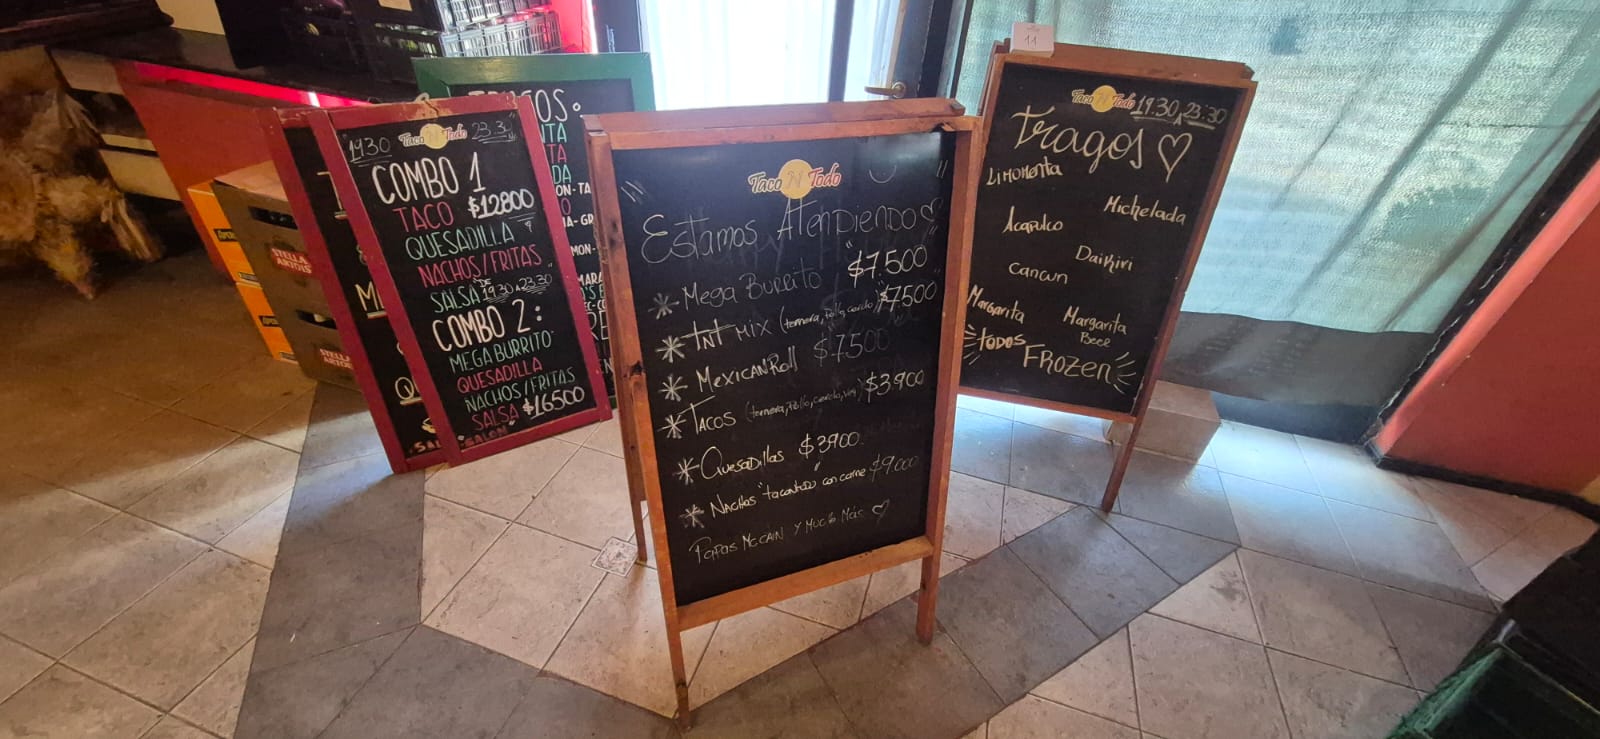 19.30 Taco N Todo 23.30
COMBO 1
TACO $12800
QUESADILLA
NACHOS/FRITAS
SALSA DE 19.30 A 23.30
COMBO 2:
MEGA BURRITO
QUESADILLA
NACHOS/FRITAS
SALSA $16500
"SALON"
STELLA ARTOIS
STELLA ARTOIS
Taco N Todo
Estamos Atendiendo
* Mega Burrito "$7.500"
* TNT mix (ternera, Pollo, cerdo) $7.500"
* MEXICAN Roll $7500
* TACOS (ternera, Pollo, cerdo, $3.900
* Quesadillas $3900
* NACHOS "tacontodo" con carne $9.000
PAPAS McCAIN Y MUCHO MÁS
11
Taco N Todo 19.30 A 23:30
tragos
LIMONENTA
Michelada
Acapulco
DAIKIRI
CANCUN
Margarita
Margarita
Beee
TODOS
FROZEN